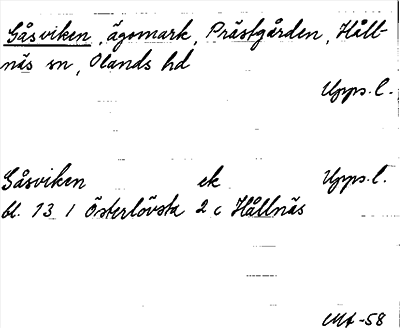 Gåsviken, ägomark, Prästgården, Håll-
näs sn, Olands hd
Upps. l.
Gåsviken ek Upps. l.
bl. 13 1 Österlövsta 2 c Hållnäs
MA-58